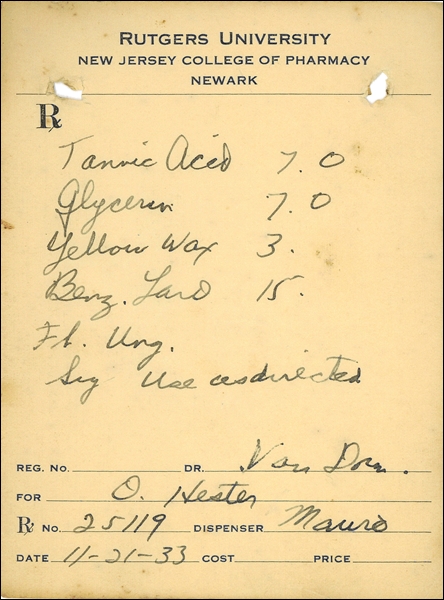 RUTGERS UNIVERSITY
NEW JERSEY COLLEGE OF PHARMACY
NEWARK
℞
Tannic Acid 7.0
Glycerin 7.0
Yellow Wax 3.
Benz. Lard 15.
Ft. Ung.
Sig Use as directed
REG. NO. DR. Van Dorn.
FOR O. Hester
℞ NO. 25119 DISPENSER Mauro
DATE 11-21-33 COST PRICE